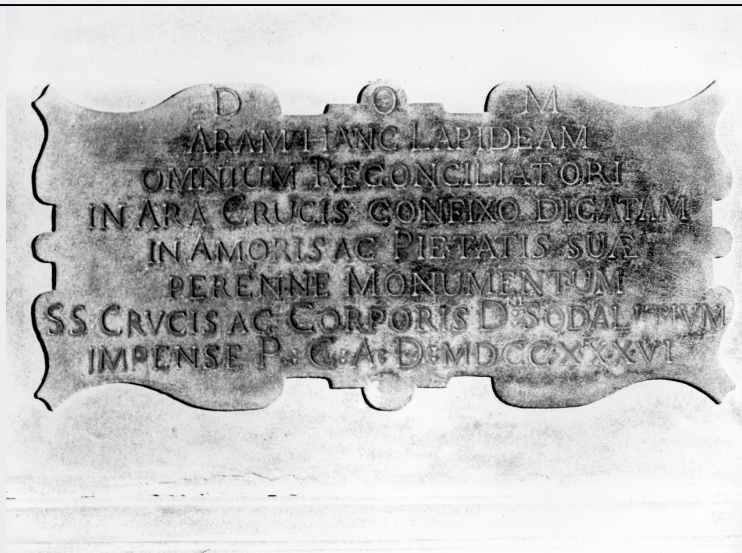 D O M
ARAM HANC LAPIDEAM
OMNIUM RECONCILIATORI
IN ARA CRUCIS CONFIXO DICATAM
IN AMORIS AC PIETATIS SUÆ
PERENNE MONUMENTUM
SS CRVCIS AC CORPORIS D.NI SODALITIVM
IMPENSE P. C. A. D. MDCCXXXVI